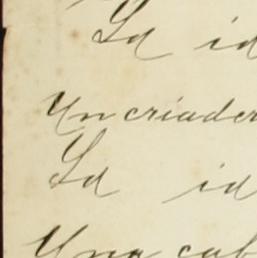 Yd id
Un criader
Yd id
Una cab